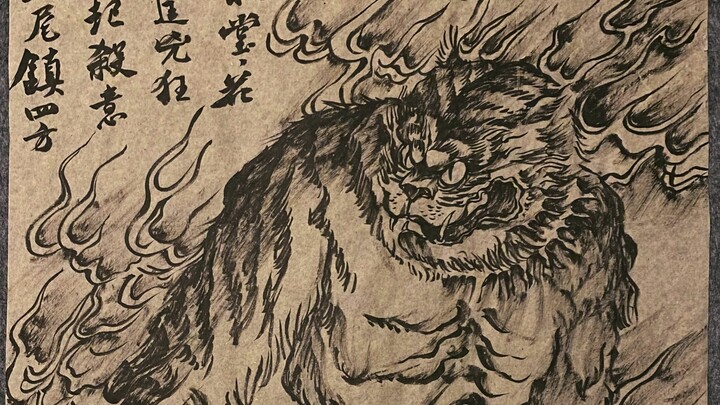 堂、若
兇狂
起殺意
尾鎮四方